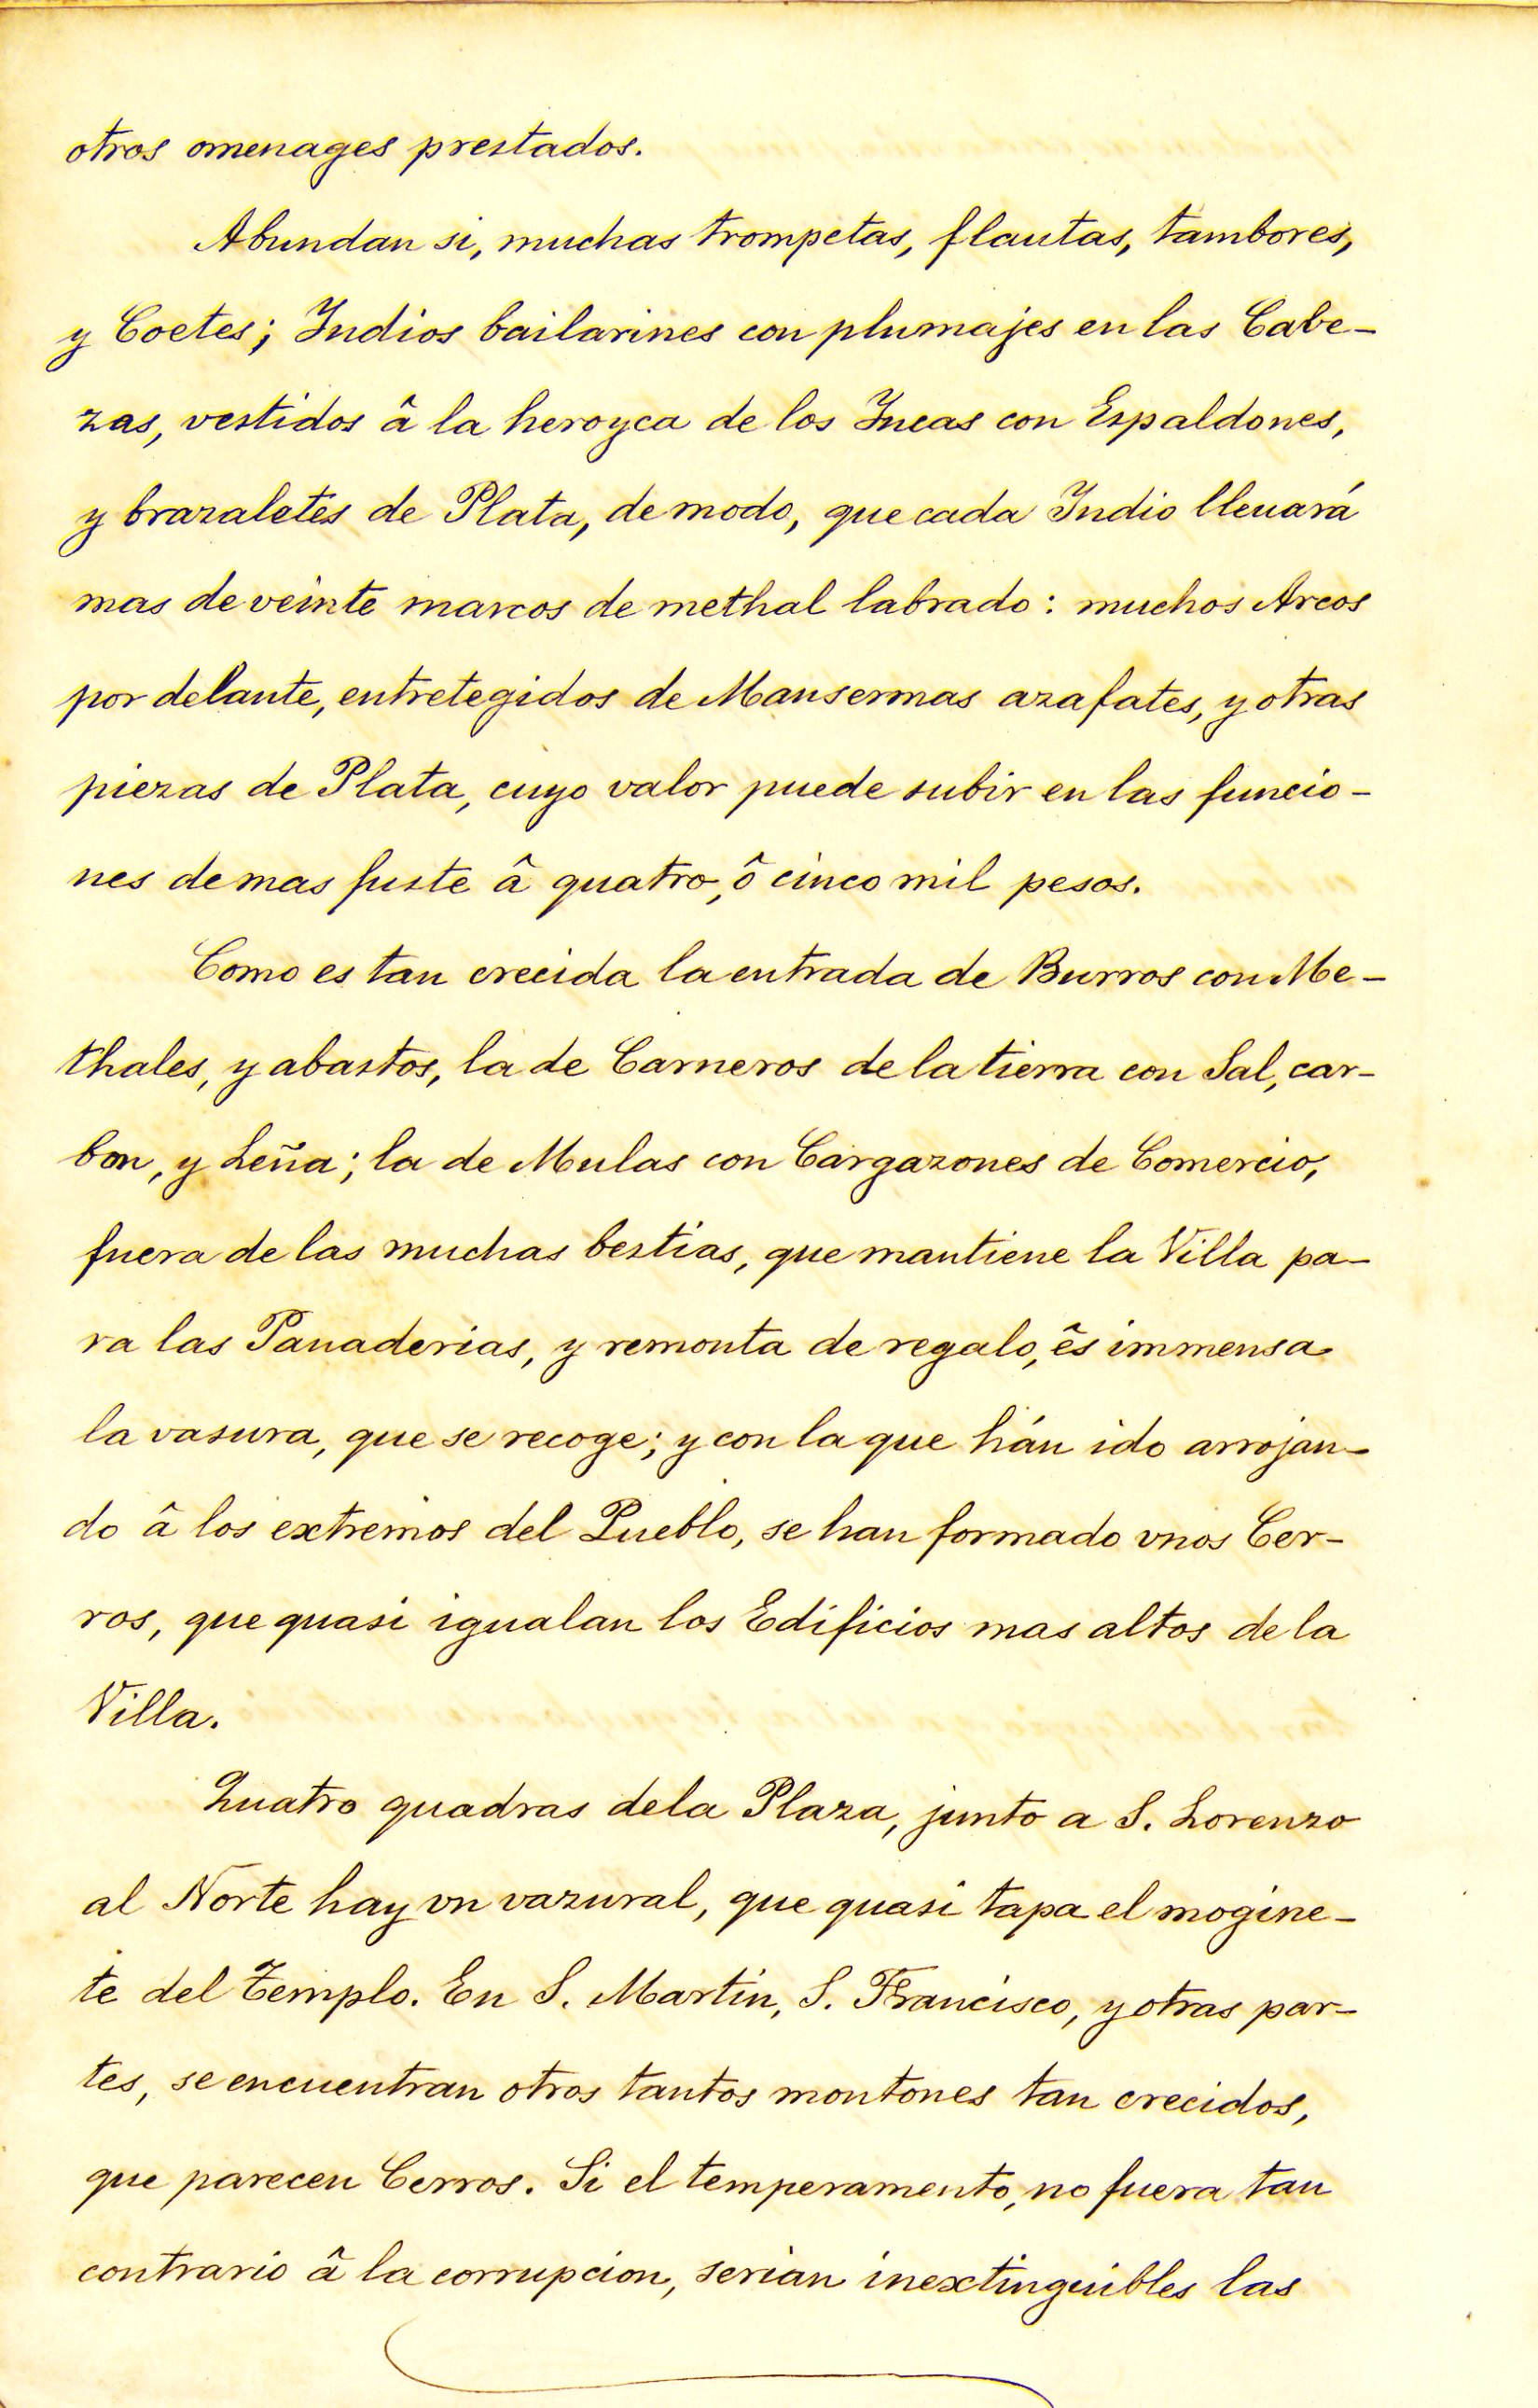 otros omenages prestados.
Abundan si, muchas trompetas, flautas, tambores,
y Coetes; Indios bailarines con plumajes en las Cabe-
zas, vestidos â la heroyca de los Incas con Espaldones,
y brazaletes de Plata, de modo, que cada Indio lleuará
mas de veinte marcos de methal labrado: muchos Arcos
por delante, entretegidos de Mansermas azafates, y otras
piezas de Plata, cuyo valor puede subir en las funcio-
nes de mas fuste â quatro, ô cinco mil pesos.
Como es tan crecida la entrada de Burros con Me-
thales, y abastos, la de Carneros de la tierra con Sal, car-
bon, y Leña; la de Mulas con Cargazones de Comercio,
fuera de las muchas bestias, que mantiene la Villa pa-
ra las Panaderias, y remonta de regalo, ês immensa
la vasura, que se recoge; y con la que hán ido arrojan-
do â los extremos del Pueblo, se han formado vnos Cer-
ros, que quasi igualan los Edificios mas altos de la
Villa.
Quatro quadras dela Plaza, junto a S. Lorenzo
al Norte hay vn vazural, que quasi tapa el mogine-
te del Templo. En S. Martin, S. Francisco, y otras par-
tes, se encuentran otros tantos montones tan crecidos,
que parecen Cerros. Si el temperamento, no fuera tan
contrario â la corrupcion, serian inextinguibles las